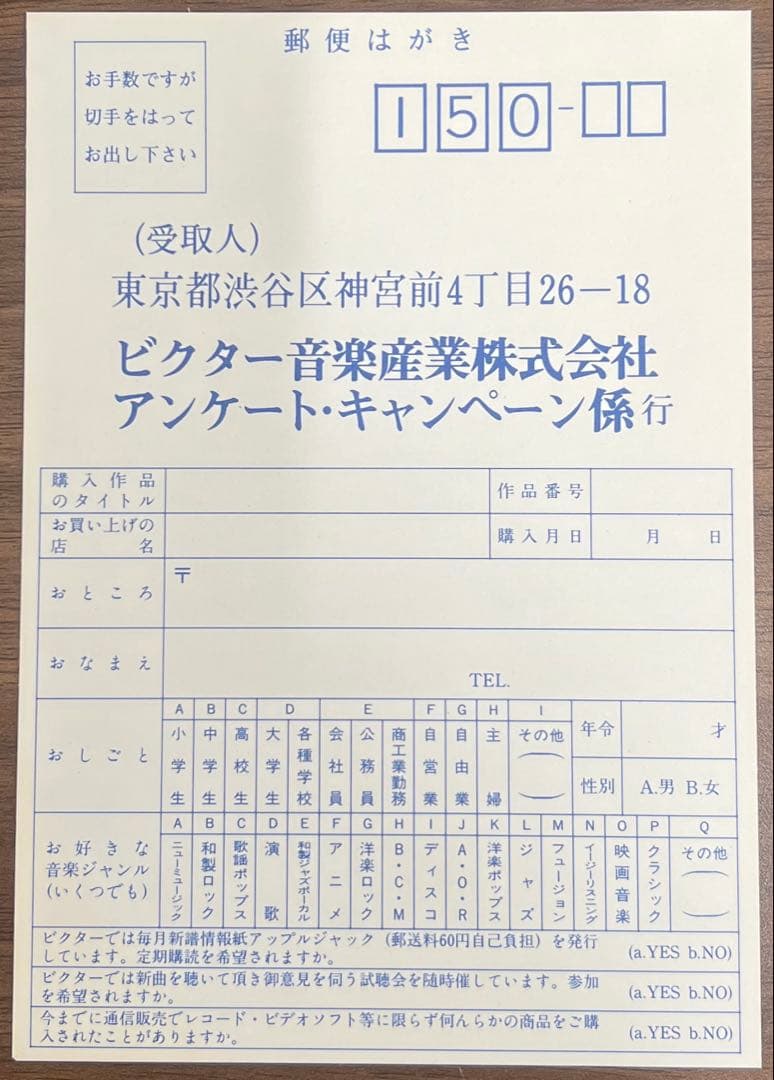 郵便はがき
お手数ですが
切手をはって
お出し下さい
150-
(受取人)
東京都渋谷区神宮前4丁目26―18
ビクター音楽産業株式会社
アンケート・キャンペーン係行
購入作品
のタイトル
作品番号
お買い上げの
店名
購入月日
月 日
おところ
〒
おなまえ
TEL.
おしごと
A B C D E F G H I
小学生
中学生
高校生
大学生
各種学校
会社員
公務員
商工業勤務
自営業
自由業
主婦
その他
( )
年令
才
性別
A.男 B.女
お好きな
音楽ジャンル
(いくつでも)
A B C D E F G H I J K L M N O P Q
ニューミュージック
和製ロック
歌謡ポップス
演歌
和製ジャズボーカル
アニメ
洋楽ロック
B・C・M
ディスコ
A・O・R
洋楽ポップス
ジャズ
フュージョン
イージーリスニング
映画音楽
クラシック
その他
( )
ビクターでは毎月新譜情報紙アップルジャック (郵送料60円自己負担) を発行
しています。定期購読を希望されますか。
(a.YES b.NO)
ビクターでは新曲を聴いて頂き御意見を伺う試聴会を随時催しています。参加
を希望されますか。
(a.YES b.NO)
今までに通信販売でレコード・ビデオソフト等に限らず何んらかの商品をご購
入されたことがありますか。
(a.YES b.NO)